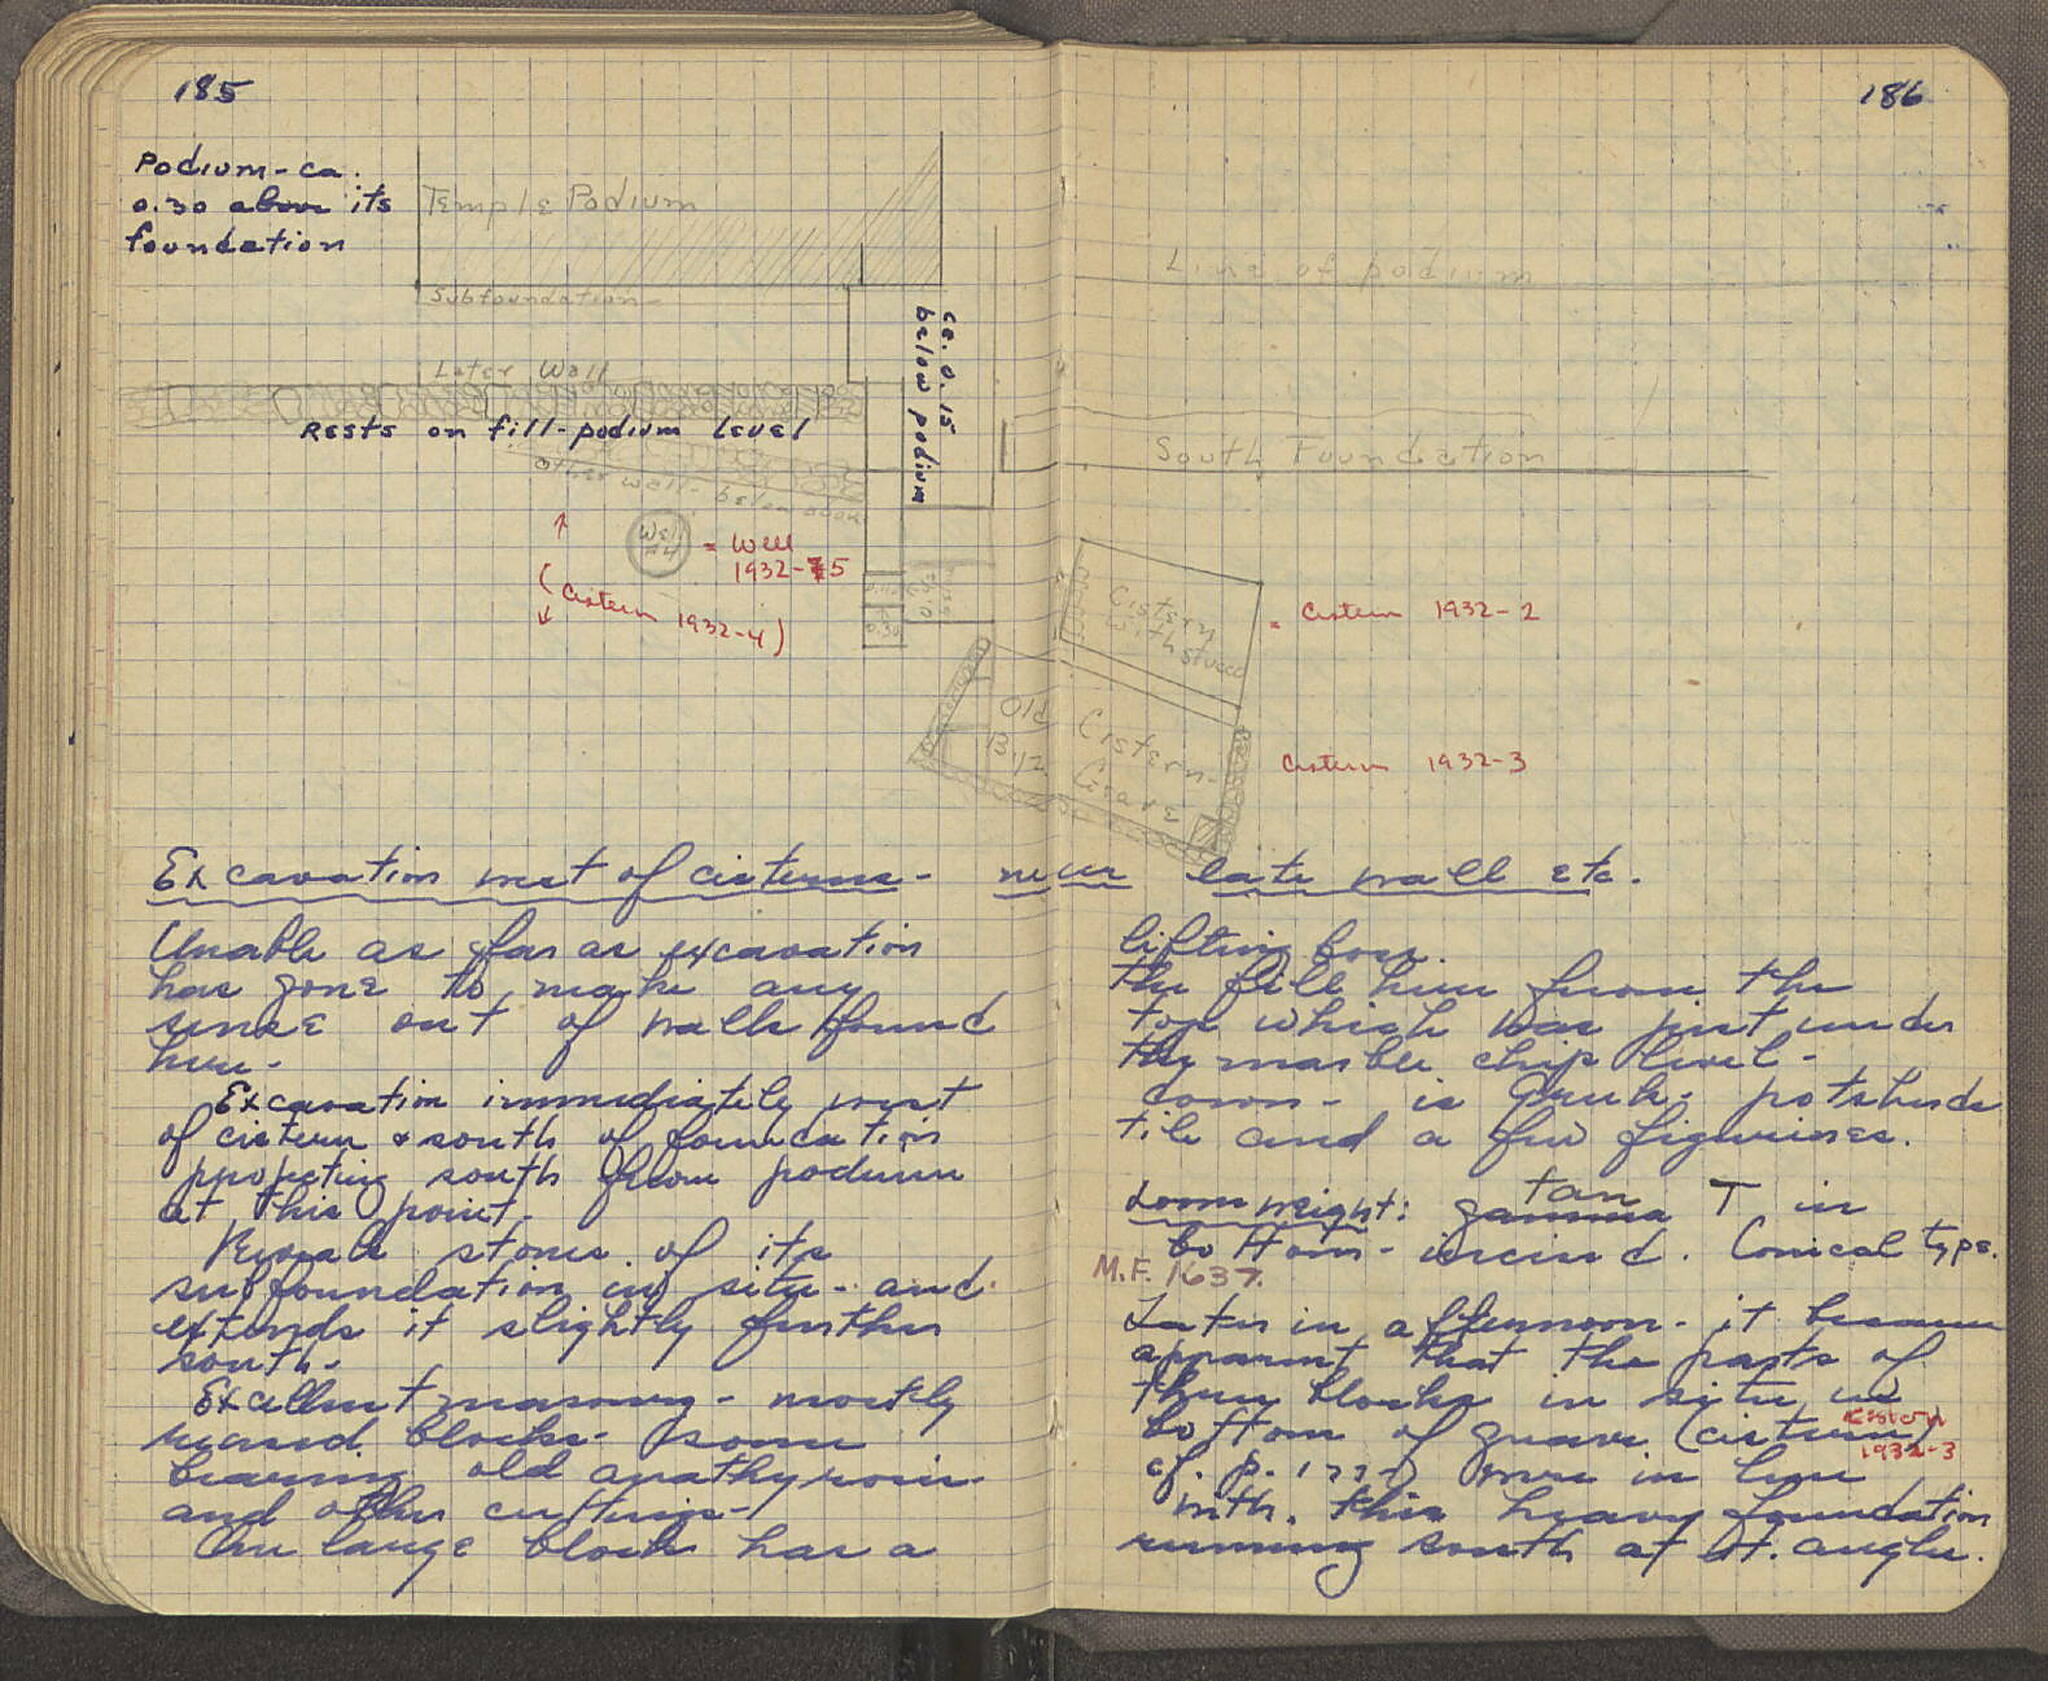 185
Podium-ca.
0.30 above its
foundation
Temple Podium
Subfoundation-
Later Wall
Rests on fill-podium level
other wall- below above
ca. 0.15
below podium
Well
#4
= Well
1932-5
(Cistern 1932-4)
0.30
Excavation west of cisterns- near late wall etc.
Unable as far as excavation
has gone to make any
sense out of walls found
here-
Excavation immediately west
of cistern & south of foundation
projecting south from podium
at this point-
Reveals stones of its
subfoundation in situ- and
extends it slightly further
south-
Excellent masonry- mostly
reused blocks- some
bearing old anathyrosis-
and other cuttings-
One large block has a
186
Line of podium
South Foundation
Cistern
with stucco
= Cistern 1932-2
Old Cistern-
Byz. Grave
Cistern 1932-3
lifting boss.
The fill here from the
top which was just under
the marble chip level-
down- is Greek- potsherds
tile and a few figurines.
tan
Loomweight: gamma T in
bottom- incised. Conical type.
M.F. 1637.
Later in afternoon- it became
apparent that the parts of
three blocks in situ in
bottom of grave (cistern)
cistern
1932-3
cf. p. 177) were in line
with this heavy foundation
running south at rt. angles.